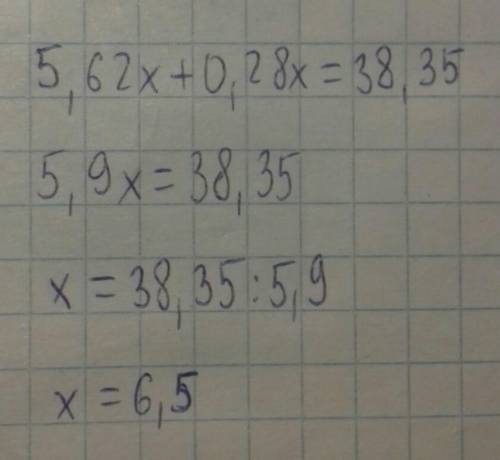 5,62x+0,28x=38,35
5,9x=38,35
x=38,35:5,9
x=6,5